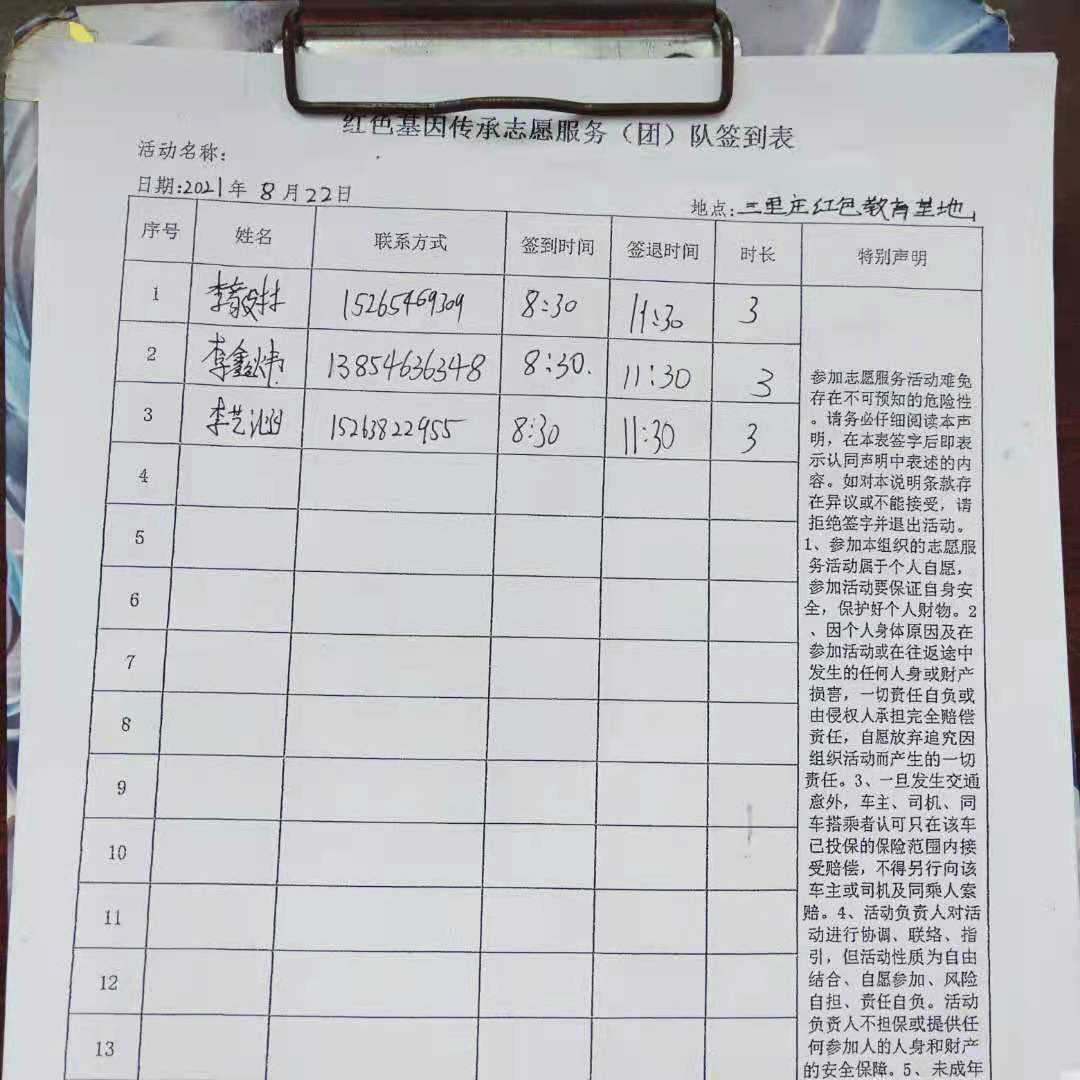 红色基因传承志愿服务（团）队签到表
活动名称：
日期:2021年 8月22日
地点:三里庄红色教育基地
序号 姓名 联系方式 签到时间 签退时间 时长 特别声明
1 李毅林 15265469309 8:30 11:30 3
2 李鑫炜 13854636348 8:30. 11:30 3
3 李艺涵 15263822955 8:30 11:30 3
4
5
6
7
8
9
10
11
12
13
参加志愿服务活动难免
存在不可预知的危险性
。请务必仔细阅读本声
明，在本表签字后即表
示认同声明中表述的内
容。如对本说明条款存
在异议或不能接受，请
拒绝签字并退出活动。
1、参加本组织的志愿服
务活动属于个人自愿，
参加活动要保证自身安
全，保护好个人财物。2
、因个人身体原因及在
参加活动或在往返途中
发生的任何人身或财产
损害，一切责任自负或
由侵权人承担完全赔偿
责任，自愿放弃追究因
组织活动而产生的一切
责任。3、一旦发生交通
意外，车主、司机、同
车搭乘者认可只在该车
已投保的保险范围内接
受赔偿，不得另行向该
车主或司机及同乘人索
赔。4、活动负责人对活
动进行协调、联络、指
引，但活动性质为自由
结合、自愿参加、风险
自担、责任自负。活动
负责人不担保或提供任
何参加人的人身和财产
的安全保障。5、未成年